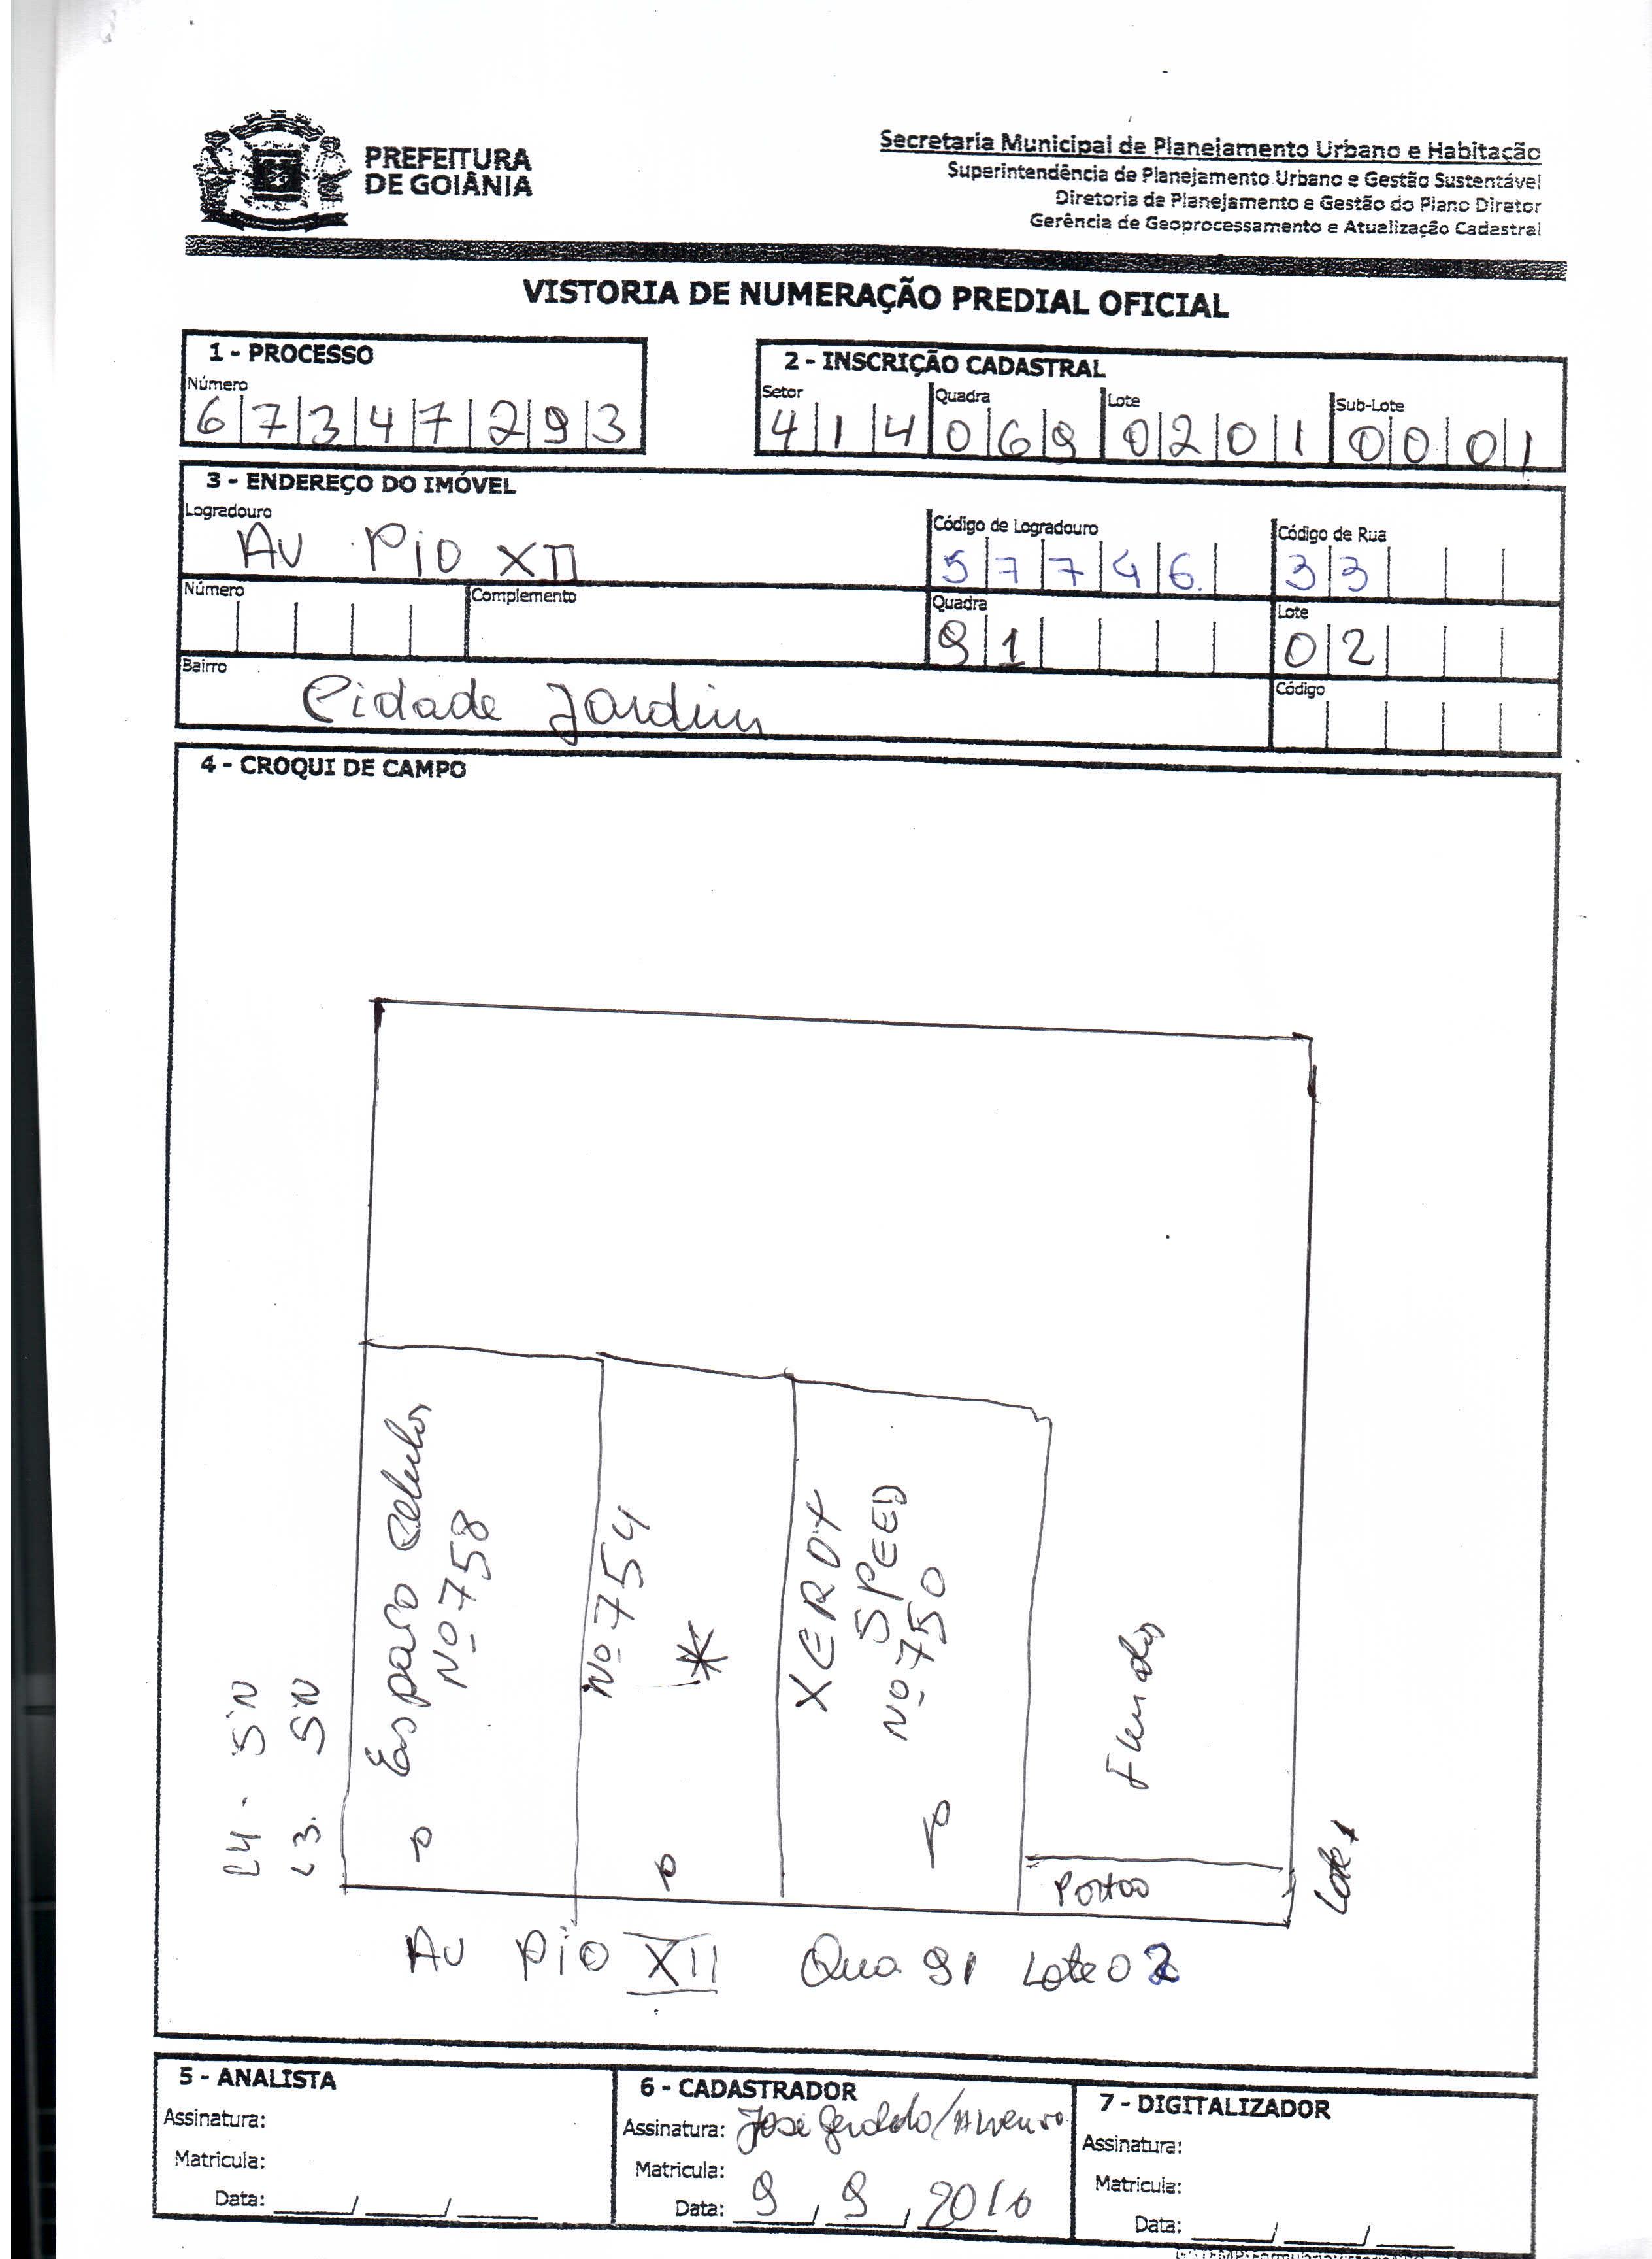 PREFEITURA
DE GOIÂNIA
Secretaria Municipal de Planejamento Urbano e Habitação
Superintendência de Planejamento Urbano e Gestão Sustentável
Diretoria de Planejamento e Gestão do Plano Diretor
Gerência de Geoprocessamento e Atualização Cadastral
VISTORIA DE NUMERAÇÃO PREDIAL OFICIAL
1 - PROCESSO
Número
67347293
2 - INSCRIÇÃO CADASTRAL
Setor Quadra Lote Sub-Lote
414 069 0201 0001
3 - ENDEREÇO DO IMÓVEL
Logradouro Código de Logradouro Código de Rua
Av Pio XII 57746 33
Número Complemento Quadra Lote
91 02
Bairro Código
Cidade Jardim
4 - CROQUI DE CAMPO
L4 - SN
L3. SN
Nº 758
Nº 754
*
XEROX
SPEED
Nº 750
Fundos
Portão
Lote 1
Av Pio XII Qua 91 Lote 02
5 - ANALISTA
Assinatura:
Matricula:
Data: ____/____/____
6 - CADASTRADOR
Assinatura: José Geraldo/
Matricula:
Data: 9/9/2016
7 - DIGITALIZADOR
Assinatura:
Matricula:
Data: ____/____/____